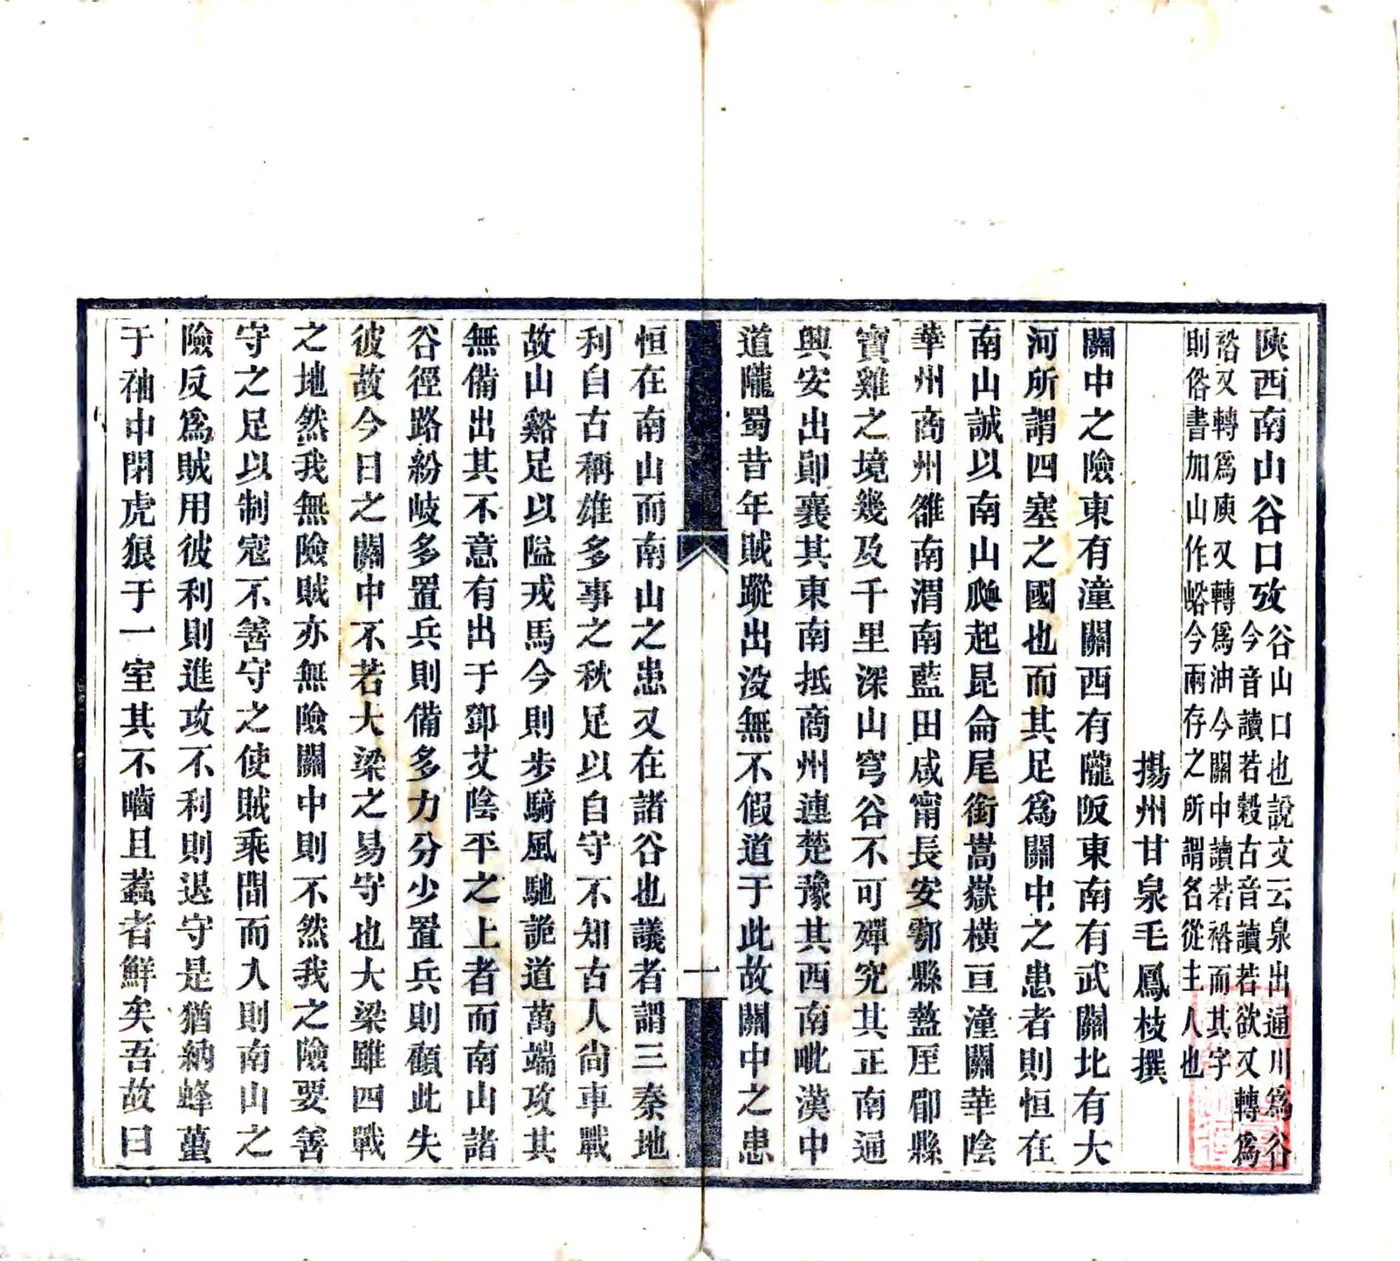 陝西南山谷口攷谷山口也說文云泉出通川爲谷
今音讀若穀古音讀若欲又轉爲
裕又轉爲庾又轉爲油今關中讀若裕而其字
則俗書加山作峪今兩存之所謂名從主人也
揚州甘泉毛鳳枝撰
關中之險東有潼關西有隴阪東南有武關北有大
河所謂四塞之國也而其足爲關中之患者則恒在
南山誠以南山發起昆侖尾銜嵩嶽橫亘潼關華陰
華州商州雒南渭南藍田咸甯長安鄠縣盩厔郿縣
寶雞之境幾及千里深山穹谷不可殫究其正南通
興安出鄖襄其東南抵商州連楚豫其西南毗漢中
道隴蜀昔年賊蹤出没無不假道于此故關中之患
一
恒在南山而南山之患又在諸谷也議者謂三秦地
利自古稱雄多事之秋足以自守不知古人尙車戰
故山谿足以隘戎馬今則步騎風馳詭道萬端攻其
無備出其不意有出于鄧艾陰平之上者而南山諸
谷徑路紛岐多置兵則備多力分少置兵則顧此失
彼故今日之關中不若大梁之易守也大梁雖四戰
之地然我無險賊亦無險關中則不然我之險要善
守之足以制寇不善守之使賊乘間而入則南山之
險反爲賊用彼利則進攻不利則退守是猶納蜂蠆
于袖中閉虎狼于一室其不嚙且蠚者鮮矣吾故曰